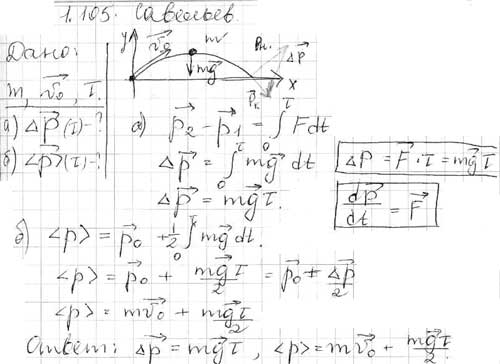 1.105. Савельев.
Дано:
m, v⃗₀, τ.
а) Δp⃗(τ)-?
б) <p⃗>(τ)-?
y v⃗₀ m mg⃗ x Pн. Δp⃗ p⃗к
а) p⃗₂ - p⃗₁ = ∫₀^τ Fdt
Δp⃗ = ∫₀^τ mg⃗ dt
Δp⃗ = mg⃗τ.
ΔP = F⃗·τ = mg⃗τ
dp⃗/dt = F⃗
б) <p> = p⃗₀ + 1/2 ∫₀^τ mg⃗ dt.
<p> = p⃗₀ + mg⃗τ/2 = p⃗₀ + Δp⃗/2
<p> = mv⃗₀ + mg⃗τ/2
Ответ: Δp⃗ = mg⃗τ, <p> = mv⃗₀ + mg⃗τ/2.